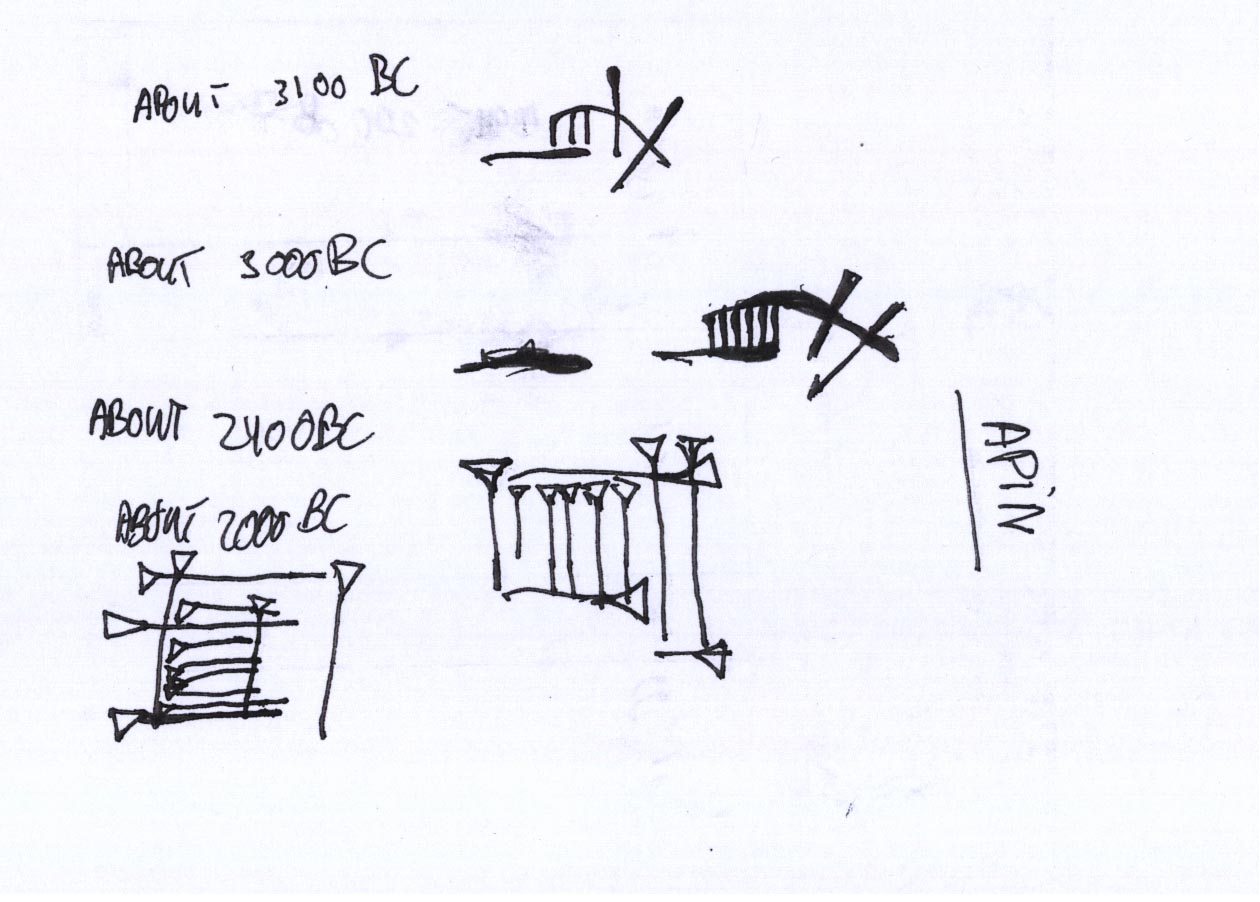 ABOUT 3100 BC
ABOUT 3000 BC
ABOUT 2400 BC
ABOUT 2000 BC
APIN